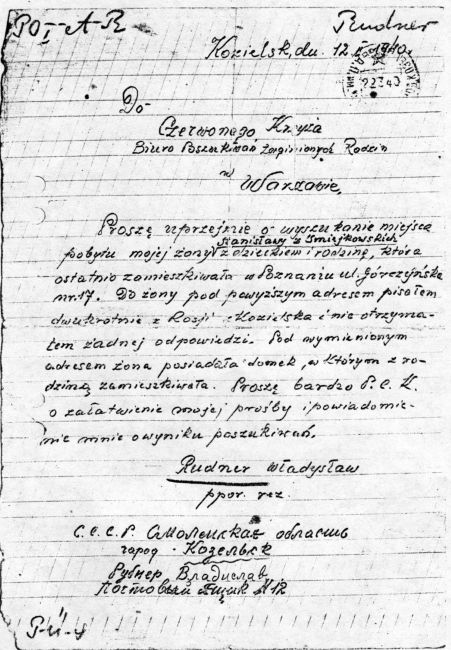 PO I - A - R
Rudner
Kozielsk, du. 12 II 1940
22340
Do
Czerwonego Krzyża
Biuro Poszukiwań Zaginionych Rodzin
w
Warszawie,
Proszę uprzejmie o wyszukanie miejsca
Stanisławy z Śmiejkowskich
pobytu mojej żony z dzieckiem i rodzinę, która
ostatnio zamieszkiwała w Poznaniu ul. Górczyńska
nr. 17. Do żony pod powyższym adresem pisałem
dwukrotnie z Rosji - Kozielska i nie otrzyma-
łem żadnej odpowiedzi. Pod wymienionym
adresem żona posiadała domek, w którym z ro-
dziną zamieszkiwała. Proszę bardzo P.C.K.
o załatwienie mojej prośby i powiadomie-
nie mnie o wyniku poszukiwań.
Rudner Władysław
ppor. rez.
С.С.С.Р. Смоленская область
город - Козельск
Руднер Владислав
Постовый Ящик № 12